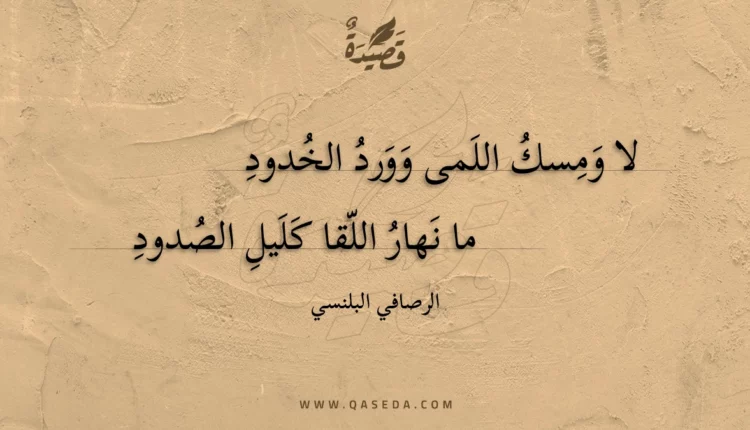 قَصِيدَةٌ
لا وَمِسكُ اللَمى وَوَردُ الخُدودِ
ما نَهارُ اللّقا كَلَيلِ الصُدودِ
الرصافي البلنسي
WWW.QASEDA.COM